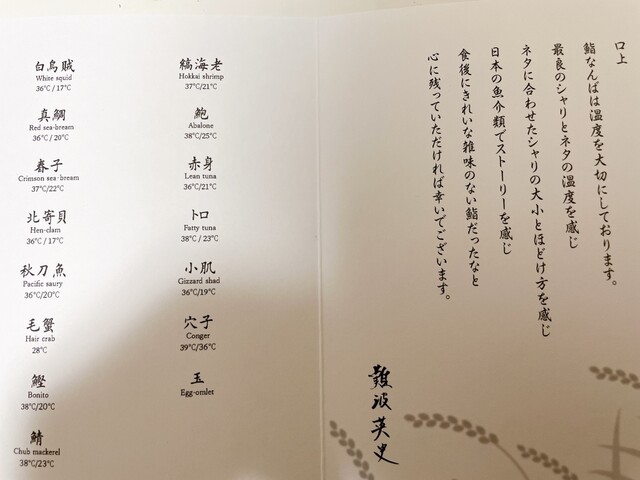 白烏賊
White squid
36℃ / 17℃
真鯛
Red sea-bream
36℃ / 20℃
春子
Crimson sea-bream
37℃/22℃
北寄貝
Hen-clam
36℃ / 17℃
秋刀魚
Pacific saury
36℃/20℃
毛蟹
Hair crab
28℃
鰹
Bonito
38℃/20℃
鯖
Chub mackerel
38℃/23℃
縞海老
Hokkai shrimp
37℃/21℃
鮑
Abalone
38℃/25℃
赤身
Lean tuna
36℃/21℃
トロ
Fatty tuna
38℃ / 23℃
小肌
Gizzard shad
36℃/19℃
穴子
Conger
39℃/36℃
玉
Egg-omlet
口上
鮨なんばは温度を大切にしております。
最良のシャリとネタの温度を感じ
ネタに合わせたシャリの大小とほどけ方を感じ
日本の魚介類でストーリーを感じ
食後にきれいな雑味のない鮨だったなと
心に残っていただければ幸いでございます。
難波英史